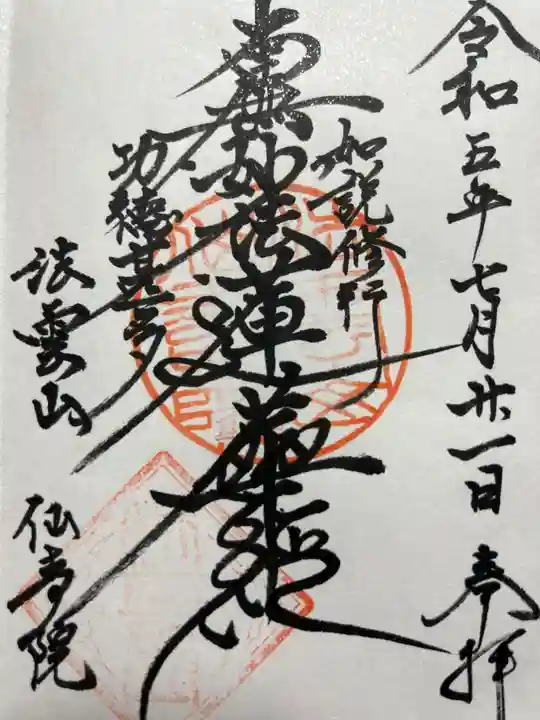 令和五年七月廿一日 奉拝
如説修行
南無妙法蓮華経
功徳甚多
法雲山
仙壽院